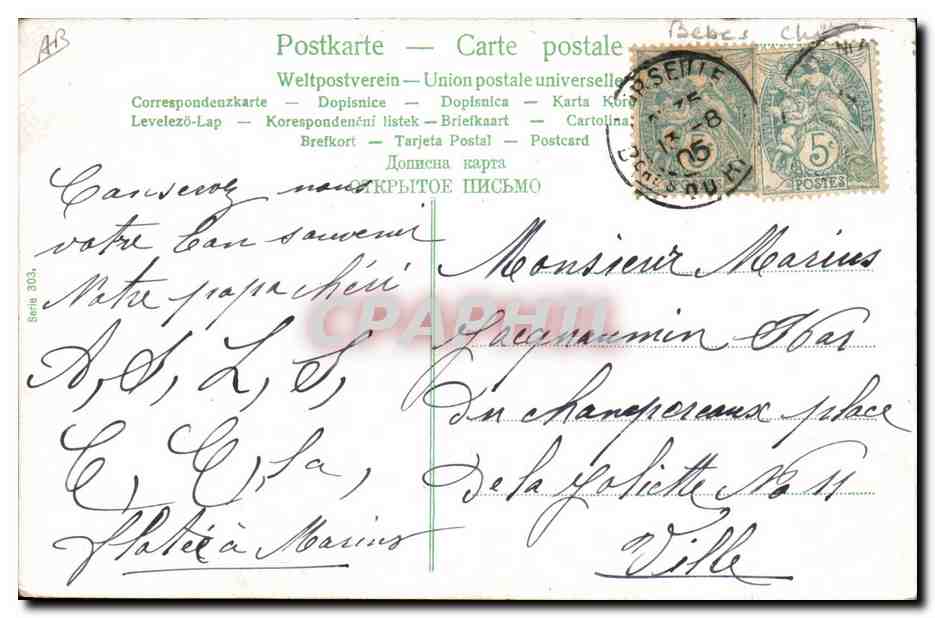 AB
Bebes
Postkarte — Carte postale
Weltpostverein — Union postale universelle
Correspondenzkarte — Dopisnice — Dopisnica — Karta Kore
Levelező-Lap — Korespondenční listek — Briefkaart — Cartolina
Brefkort — Tarjeta Postal — Postcard
Дописна карта
ОТКРЫТОЕ ПИСЬМО
MARSEILLE
13 -8
05
BCHES DU RH
5
5c
POSTES
Serie 303.
Conservez nous
votre bon souvenir
Notre papa chéri
A, S, L, S,
C, C, Sa,
flatéé à Marius
Monsieur Marius
Jacquaumin Bar
du champoreaux place
de la Joliette No 11
Ville
CPAPHIL